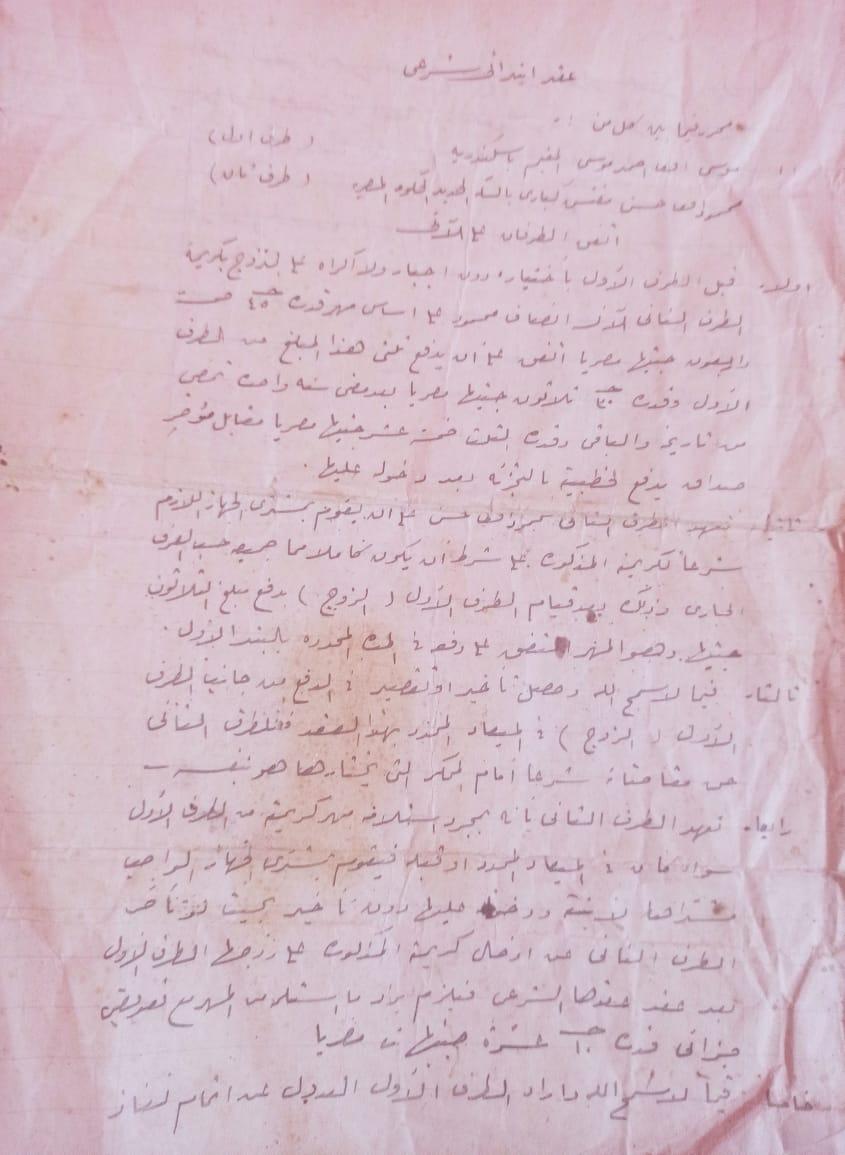 عقد ابتدائى شرعى
محرر فيما بين كل من :-
موسى احمد موسى المقيم باسكندريه (طرف اول)
محمود حسن مفتش كبارى بالسكة الحديد المصريه (طرف ثان)
اتفق الطرفان على الآتى
اولا. قبل الطرف الأول بأختياره دون اجبار ولا اكراه على التزوج بكريمة
الطرف الثانى الآنسة محمود على اساس مهر قدره ٤٥ جـ خمسة
واربعون جنيها مصريا اتفق على أن يدفع ثلثى هذا المبلغ من الطرف
الأول وقدره ٣٠ جـ ثلاثون جنيها مصريا بعد مضى سنه واحدة تمضى
من تاريخه والباقى وقدره الثلث خمسة عشر جنيها مصريا مقابل مؤخر
صداق يدفع لخطيبته بالتجزئه بعد دخوله عليها.
ثانيا تعهد الطرف الثانى محمود حسن على ان يقوم بمشترى الجهاز اللازم
شرعا لكريمته المذكوره على شرط أن يكون كاملا مما جميعه حسب العرف
الجارى وذلك بعد قيام الطرف الأول (الزوج) بدفع مبلغ الثلاثون
جنيها وهو المهر المتفق على دفعه فى المده المحدده بالبند الأول.
ثالثا. فيما لا سمح الله وحصل تأخير او تقصير فى الدفع من جانب الطرف
الأول (الزوج) فى الميعاد المحدد بهذا العقد فللطرف الثانى
حق مقاضاته شرعا أمام المحاكم التى يختارها هو بنفسه
رابعا. تعهد الطرف الثانى بأنه بمجرد استلامه مهر كريمته من الطرف الأول
سواء كان فى الميعاد المحدد او قبله فيقوم بمشترى الجهاز الواجب
لابنته ودخوله عليها دون تأخير بحيث لو تأخر
الطرف الثانى عن ادخال كريمته المذكوره على زوجها الطرف الأول
بعد عقد عقدها الشرعى فيلزم برد ما استلمه من المهر مع تعويض
جزائى قدره ١٠ جـ عشرة جنيهات مصريا
خامسا فيما لا سمح الله واراد الطرف الأول العدول عن اتمام نفاذ